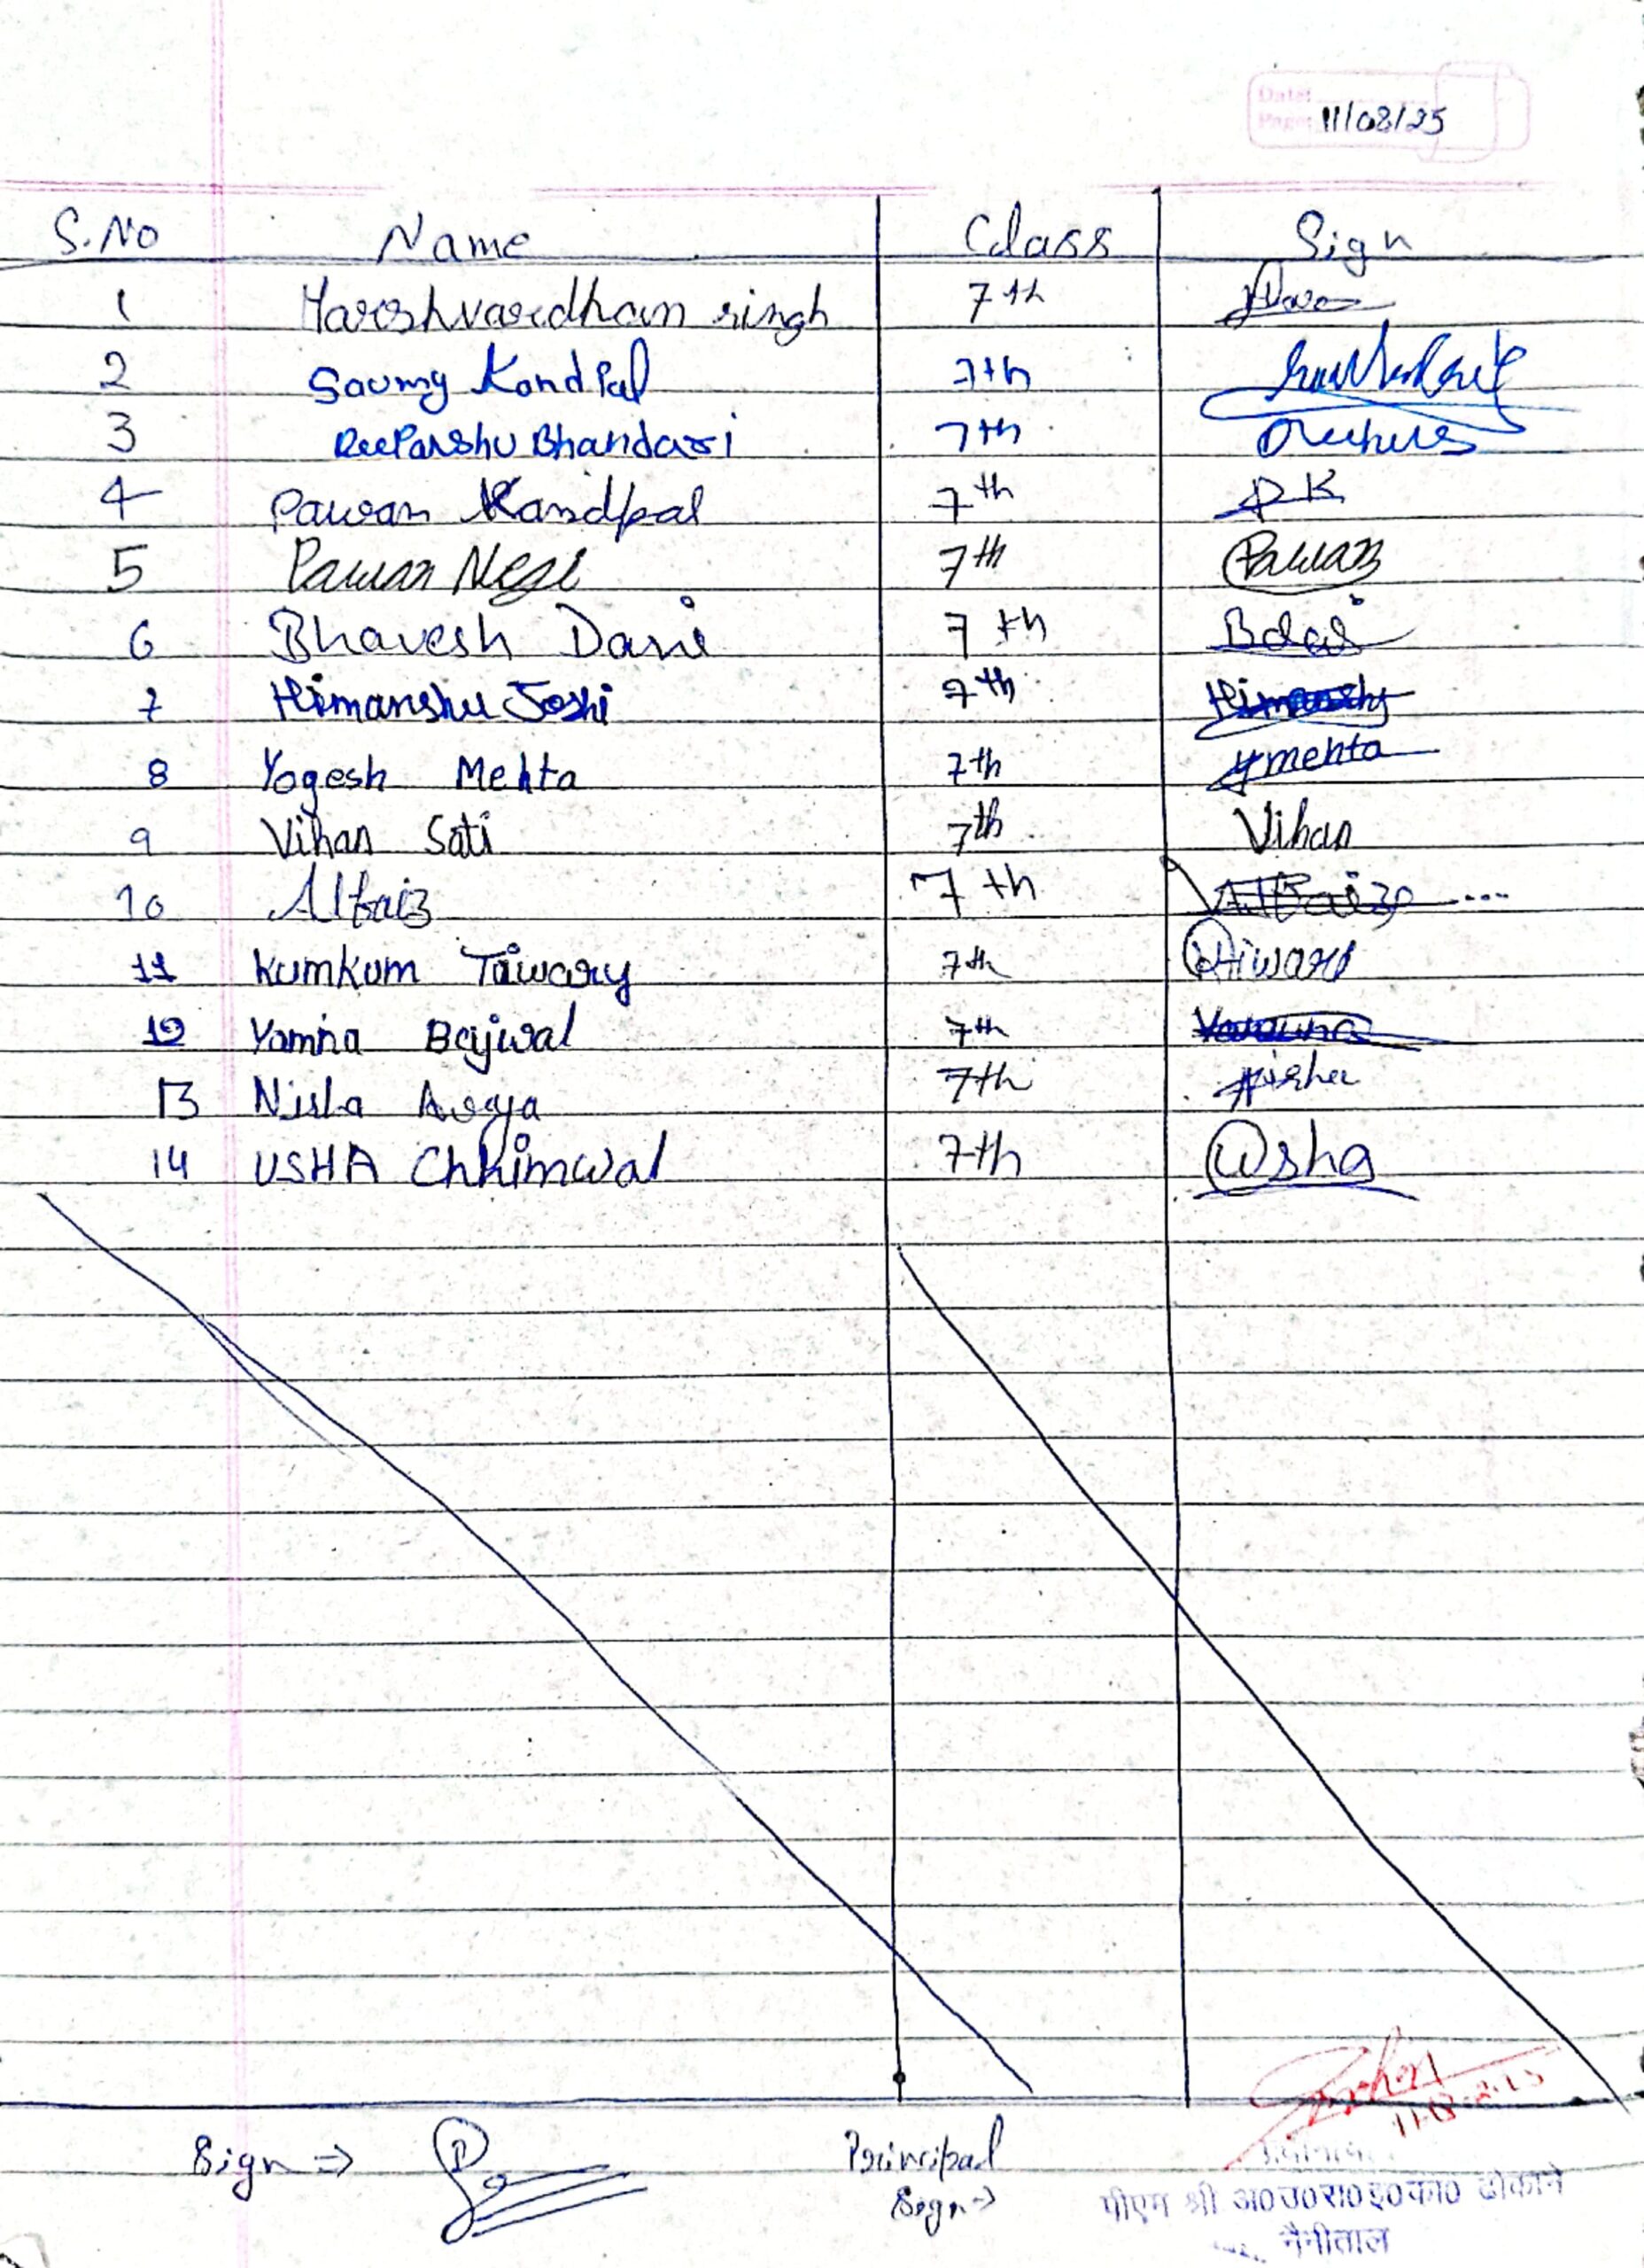 Date:
Page: 11/08/25
S.No Name Class Sign
1 Harshvardhan singh 7th
2 Saumy Kandpal 7th
3 Deepanshu Bhandari 7th Deepanshu
4 Pawan Kandpal 7th PK
5 Pawan Negi 7th Pawan
6 Bhavesh Dani 7th
7 Himanshu Joshi 7th Himanshu
8 Yogesh Mehta 7th ymehta
9 Vihan Sati 7th Vihan
10 Alfaiz 7th Alfaiz
11 Kumkum Tiwary 7th
12 Yamna Bejwal 7th
13 Nisha Arya 7th Nisha
14 USHA Chhimwal 7th Usha
Sign ⇒ Principal
Sign →
पीएम श्री अ०उ०रा०इ०का० ढोकाने
नैनीताल